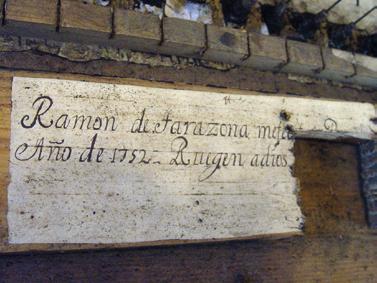 Ramon de Tarazona me fa
Año de 1752 - Ruegen a dios